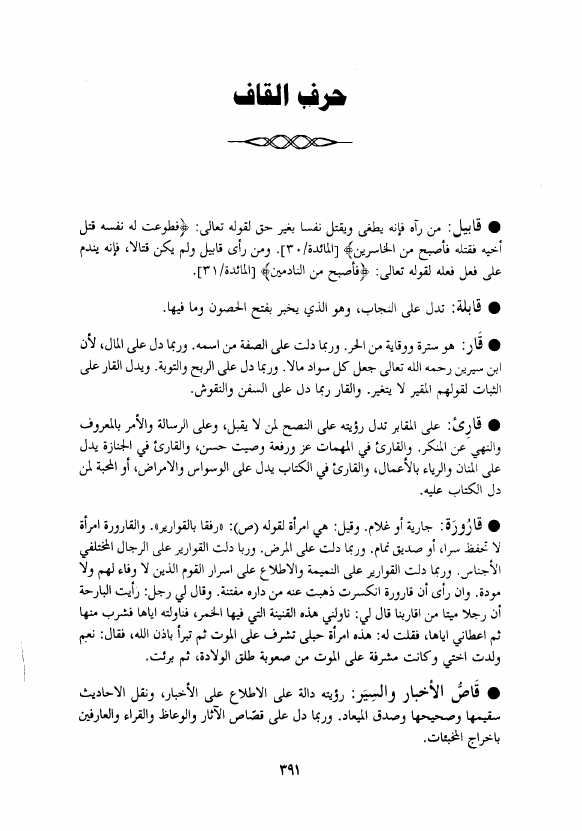 حرف القاف
● قابيل: من رآه فإنه يطغى ويقتل نفسا بغير حق لقوله تعالى: ﴿فطوعت له نفسه قتل
أخيه فقتله فأصبح من الخاسرين﴾ [المائدة/٣٠]. ومن رأى قابيل ولم يكن قتالا، فإنه يندم
على فعل فعله لقوله تعالى: ﴿فأصبح من النادمين﴾ [المائدة/٣١].
● قابلة: تدل على النجاب، وهو الذي يخبر بفتح الحصون وما فيها.
● قَار: هو سترة ووقاية من الحر. وربما دلت على الصفة من اسمه. وربما دل على المال، لأن
ابن سيرين رحمه الله تعالى جعل كل سواد مالا. وربما دل على الربح والتوبة. ويدل القار على
الثبات لقولهم المقير لا يتغير. والقار ربما دل على السفن والنقوش.
● قارِئ: على المقابر تدل رؤيته على النصح لمن لا يقبل، وعلى الرسالة والأمر بالمعروف
والنهي عن المنكر. والقارئ في المهمات عز ورفعة وصيت حسن، والقارئ في الجنازة يدل
على المنان والرياء بالأعمال، والقارئ في الكتاب يدل على الوسواس والامراض، أو المحبة لمن
دل الكتاب عليه.
● قارُورَة: جارية أو غلام. وقيل: هي امرأة لقوله (ص): «رفقا بالقوارير». والقارورة امرأة
لا تحفظ سرا، أو صديق نمام. وربما دلت على المرض. وربا دلت القوارير على الرجال المختلفي
الأجناس. وربما دلت القوارير على النميمة والاطلاع على اسرار القوم الذين لا وفاء لهم ولا
مودة. وان رأى أن قارورة انكسرت ذهبت عنه من داره مفتنة. وقال لي رجل: رأيت البارحة
أن رجلا ميتا من اقاربنا قال لي: ناولني هذه القنينة التي فيها الخمر، فناولته اياها فشرب منها
ثم اعطاني اياها، فقلت له: هذه امرأة حبلى تشرف على الموت ثم تبرأ باذن الله، فقال: نعم
ولدت اختي وكانت مشرفة على الموت من صعوبة طلق الولادة، ثم برئت.
● قَاصُّ الأخبار والسِيَر: رؤيته دالة على الاطلاع على الأخبار، ونقل الاحاديث
سقيمها وصحيحها وصدق الميعاد. وربما دل على قصّاص الآثار والوعاظ والقراء والعارفين
باخراج المخبئات.
٣٩١